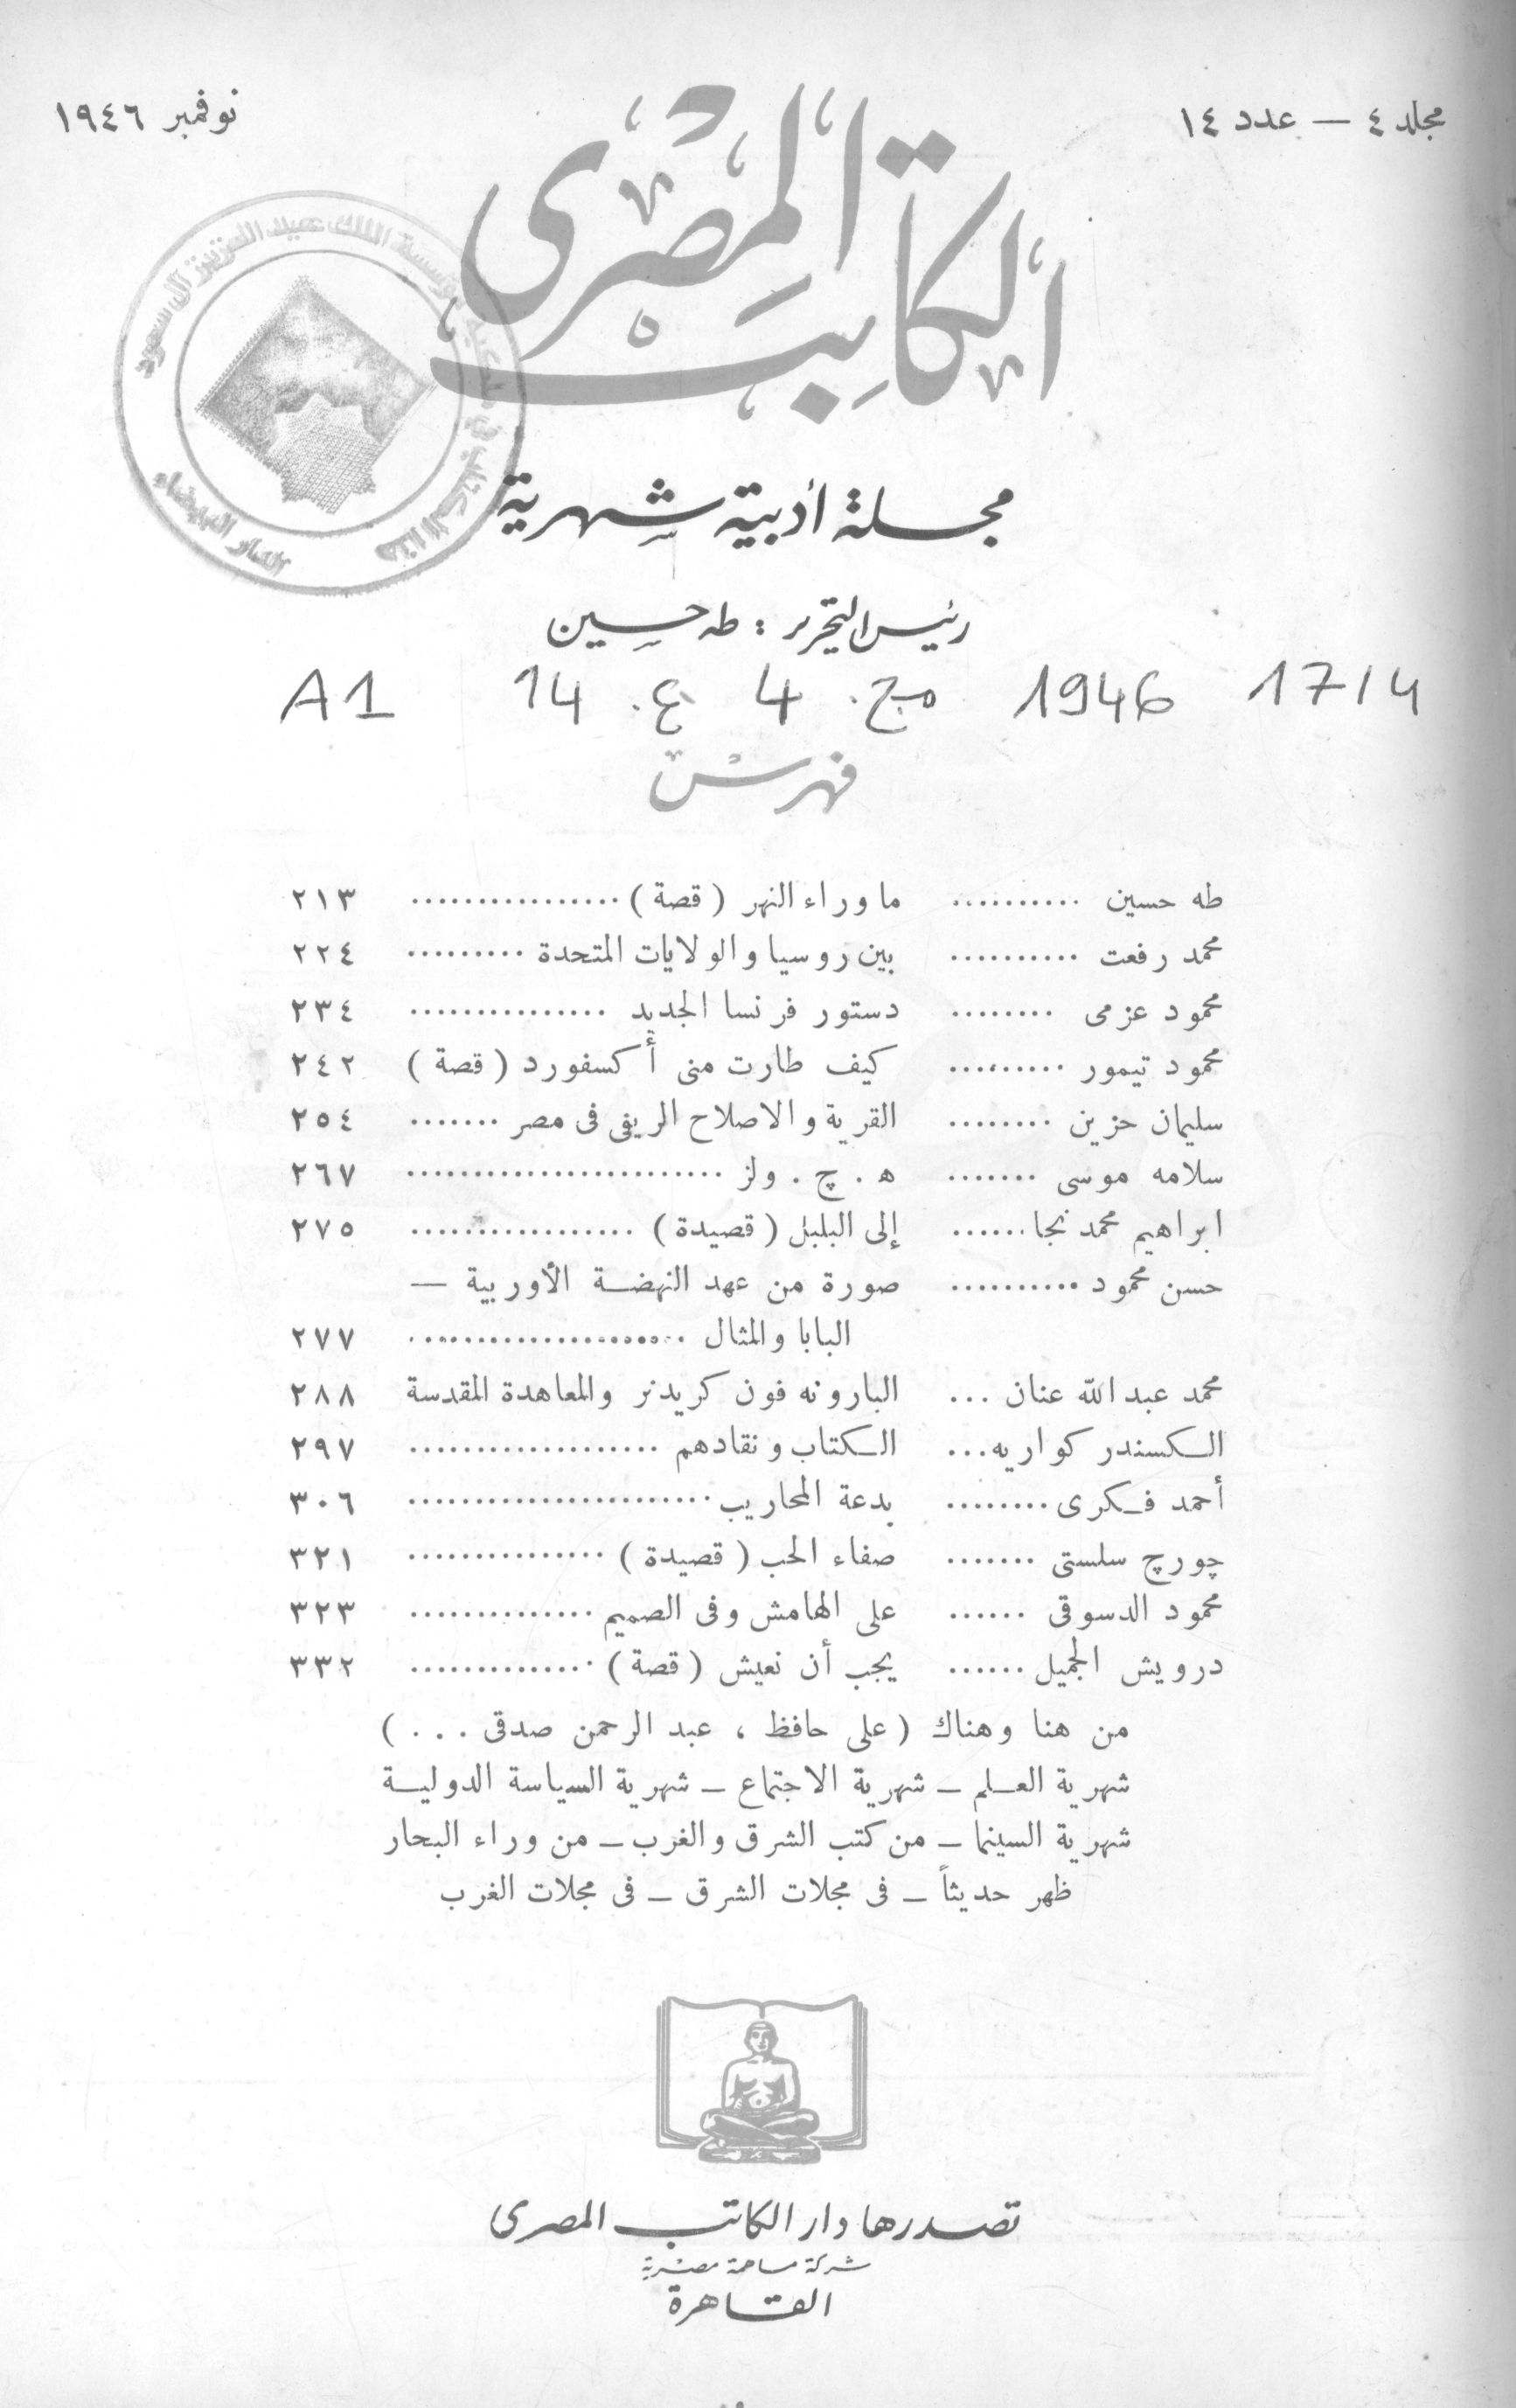 مجلد ٤ — عدد ١٤
نوفمبر ١٩٤٦
الكاتب المصرى
مؤسسة الملك عبد العزيز آل سعود
هذا الكتاب في ملكية
الدار البيضاء
مجلة أدبية شهرية
رئيس التحرير : طه حسين
17/4 1946 مج. 4 ع. 14 A1
فهرس
طه حسين .......... ما وراء النهر ( قصة ) ................ ٢١٣
محمد رفعت .......... بين روسيا والولايات المتحدة ......... ٢٢٤
محمود عزمى ........ دستور فرنسا الجديد ............... ٢٣٤
محمود تيمور ......... كيف طارت منى أكسفورد ( قصة ) ٢٤٢
سليمان حزين ........ القرية والاصلاح الريفى فى مصر ....... ٢٥٤
سلامه موسى ....... ه . چ . ولز ........................ ٢٦٧
ابراهيم محمد نجا ...... إلى البلبل ( قصيدة ) ................. ٢٧٥
حسن محمود .......... صورة من عهد النهضة الأوربية —
البابا والمثال ..................... ٢٧٧
محمد عبد الله عنان ... البارونه فون كريدنر والمعاهدة المقدسة ٢٨٨
الكسندر كواريه ... الكتاب ونقادهم ................... ٢٩٧
أحمد فكرى ........ بدعة المحاريب ....................... ٣٠٦
چورچ سلستى ....... صفاء الحب ( قصيدة ) ............... ٣٢١
محمود الدسوقى ...... على الهامش وفى الصميم .............. ٣٢٣
درويش الجميل ...... يجب أن نعيش ( قصة ) .............. ٣٣٢
من هنا وهناك ( على حافظ ، عبد الرحمن صدقى . . . )
شهرية العلم — شهرية الاجتماع — شهرية السياسة الدولية
شهرية السينما — من كتب الشرق والغرب — من وراء البحار
ظهر حديثاً — فى مجلات الشرق — فى مجلات الغرب
تصدرها دار الكاتب المصرى
شركة مساهمة مصرية
القاهرة